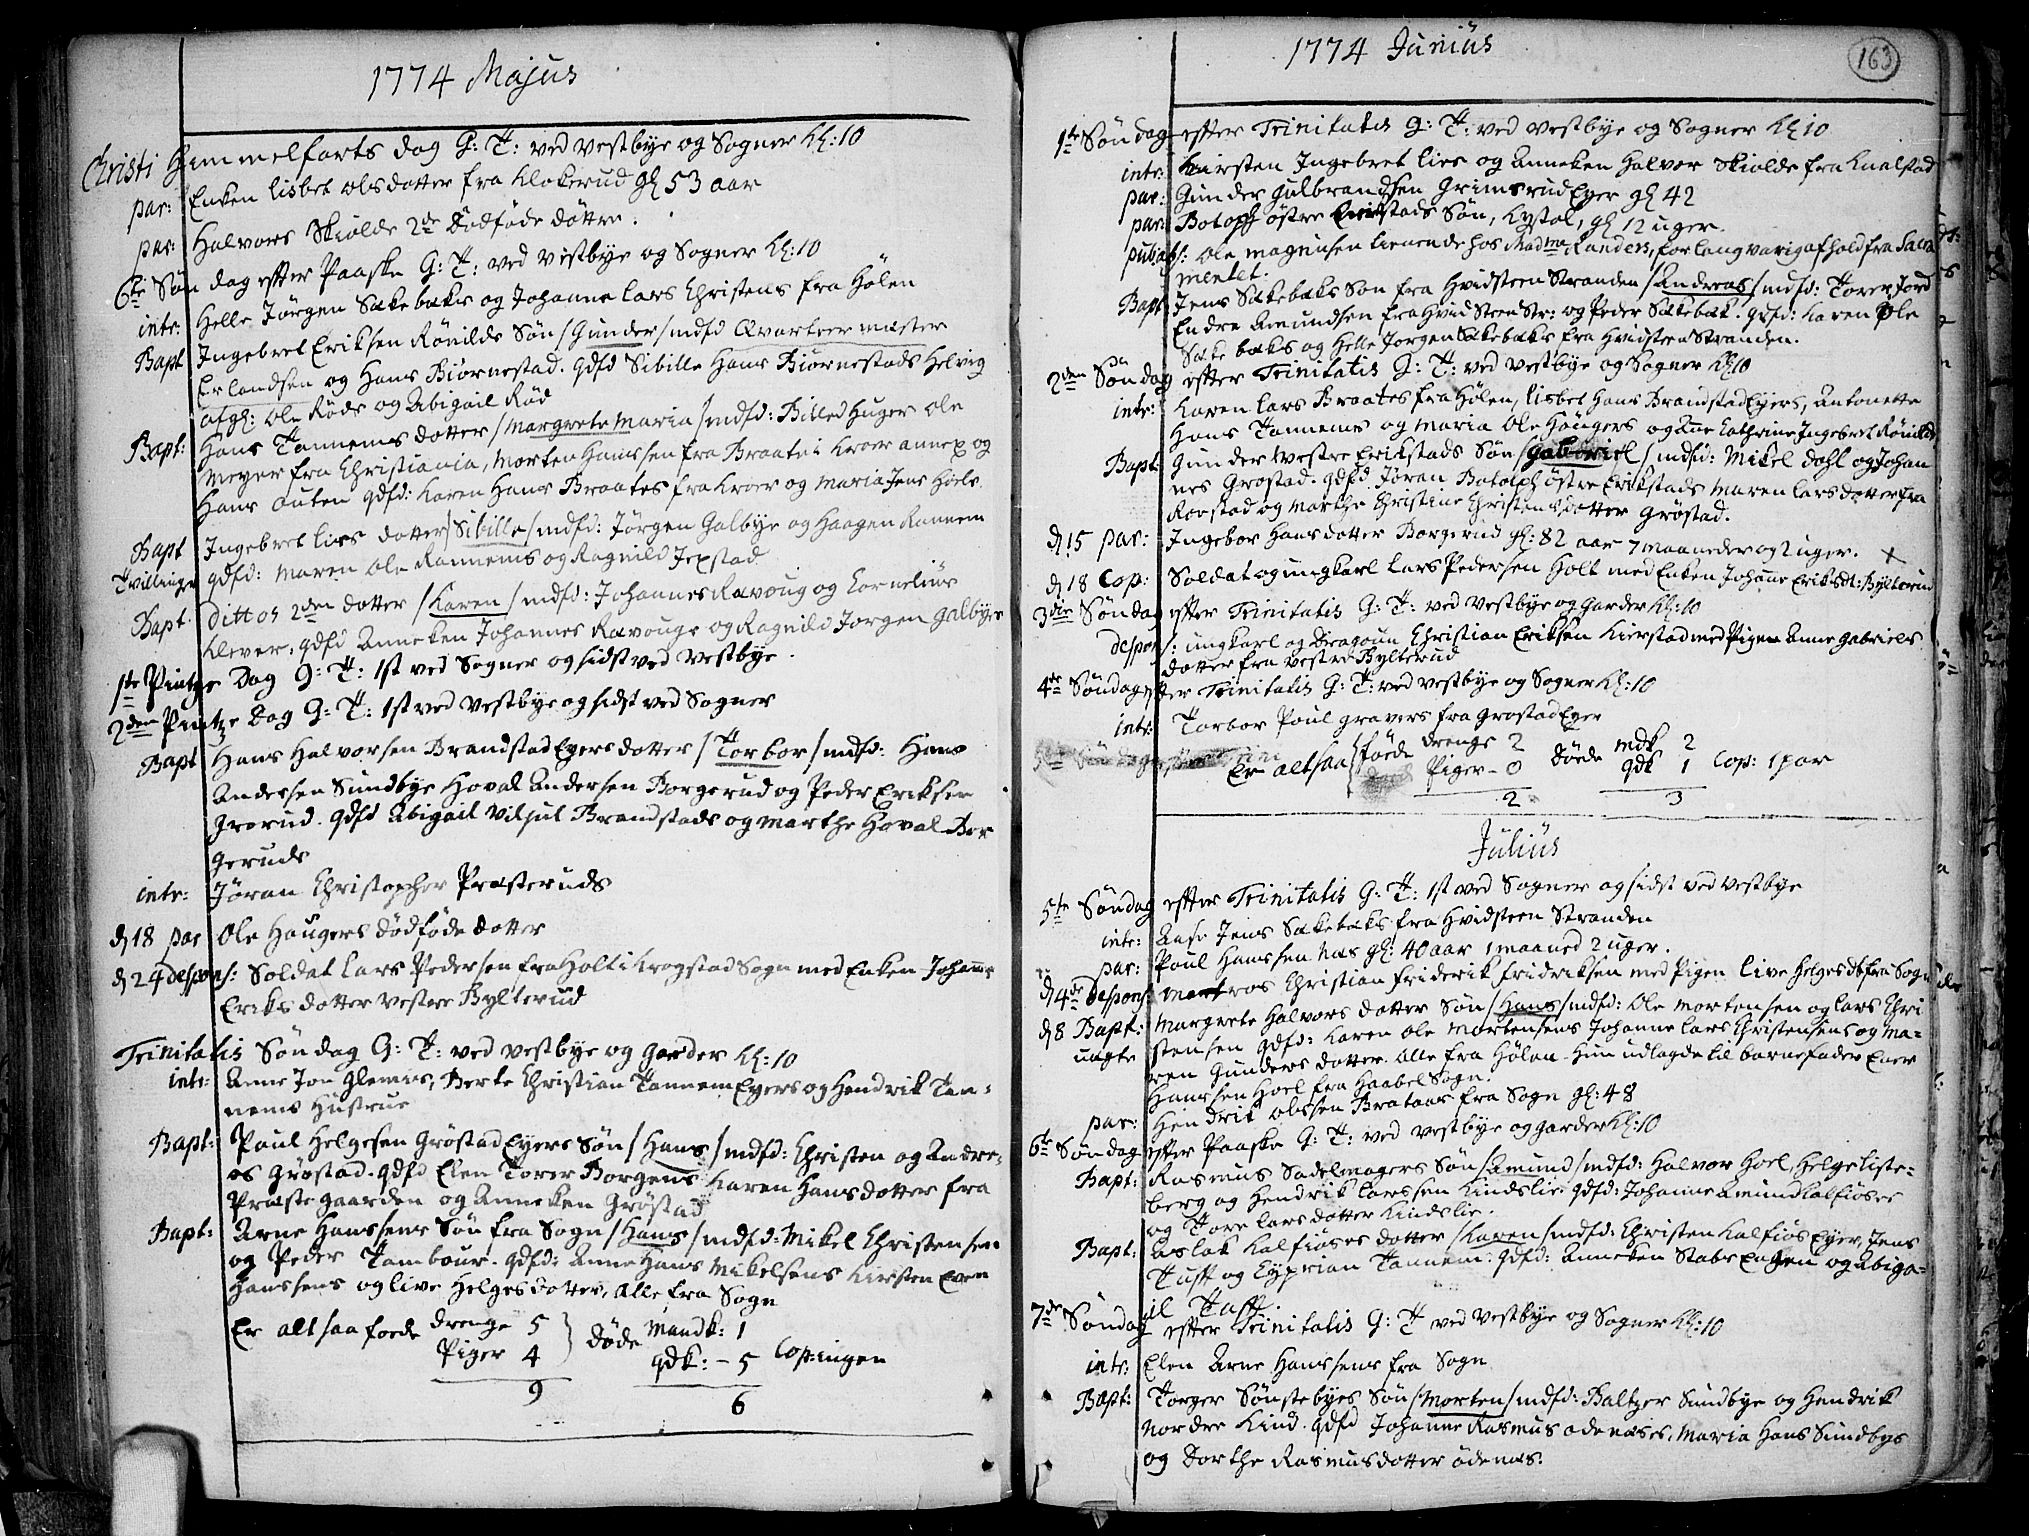 1774 Majus
Christi Himmelfarts dag G: T: ved Vestbye og Sogner Kl: 10
par: Enken Lisbet Olsdotter fra Klokerud gl 53 aar
par: Halvors Skiolde 2de Dødføde døttre.
6te Søndag efter Paaske G: T: ved Vestbye og Sogner Kl: 10
intr: Helle Jørgen Sækebæks og Johanne Lars Christens fra Hølen
Bapt Ingebret Eriksen Rønilds Søn / Gunder / mdfd Qvarteermæster
Erlandsen og Hans Biørnestad. qdfd Sibille Hans Biørnestads Helvig
afgl: Ole Røds og Abigail Rød
Bapt: Hans Tannems dotter / Margrete Maria / mdfd: Billedhuger Ole
Meyer fra Christiania, Morten Hanssen fra Braate i Kroer annex og
Hans Outen qdfd: Karen Hans Braates fra Kroer og Maria Jens Hoels
Bapt Ingebret Lies dotter / Sibille / mdfd: Jørgen Galbye og Haagen Rannem
Tvillinger qdfd: Maren Ole Rannems og Ragnild Jexstad
Bapt Dittos 2den dotter / Karen / mdfd: Johannes Ravoug og Cornelius
Klever. qdfd Anneken Johannes Ravougs og Ragnild Jørgen Galbyes
1ste Pintze Dag G: T: 1st ved Sogner og sidst ved Vestbye.
2den Pintze Dag G: T: 1st ved Vestbye og sidst ved Sogner
Bapt Hans Halvorsen Brandstad Eyers dotter / Torbor / mdfd: Hans
Andersen Sundbye Hoval Andersen Borgerud og Peder Eriksen
Grorud. qdfd Abigail Viljul Brandstads og Marthe Hoval Bor
geruds
intr: Jøran Christopher Præsteruds
d 18 par Ole Haugers dødføde dotter
d 24 despons: Soldat Lars Pedersen fra Holt i Krogstad Sogn med Enken Johanne
Eriks dotter Vestre Bylterud
Trinitatis Søndag G: T: ved Vestbye og Garder Kl: 10
intr: Anne Jon Glemis, Berte Christian Tannem Eyers og Hendrik Tan-
nems Hustrue
Bapt: Paul Helgesen Grøstad Eyers Søn / Hans / mdfd: Christen og Andre-
as Grøstad. qdfd Elen Torer Borgens Karen Hans dotter fra
Præstegaarden og Anneken Grøstad
Bapt: Arne Hanssens Søn fra Sogn / Hans / mdfd: Mikel Christensen
og Peder Tambour. qdfd: Anne Hans Mikelsens Kirsten Even
Hanssens og Live Helgesdotter, Alle fra Sogn
Er altsaa føde drenge 5 døde Mandk: 1
Piger 4 qdk: - 5 Cop: ingen
9 6
1774 Junius
163
1te Søndag efter Trinitatis G: T: ved Vestbye og Sogner Kl 10
intr: Kirsten Ingebret Lies og Anneken Halvor Skiolde fra Knalstad
par: Gunder Gulbrandsen Grimsrud Eyer gl 42
par: Botolph østre Erikstads Søn, Kystol, gl 12 uger.
pub: abs: Ole Magnusen tienende hos Madme Randers, for langvarig afhold fra Sacra
mentet.
Bapt Jens Sækebæks Søn fra Hvidsteen Stranden / Andreas / mdfd: Torer Jord
Endre Amundsen fra Hvidsteen Str: og Peder Sækebæk. qdfd: Karen Ole
Sækebæks og Helle Jørgen Sækebæks fra Hvidsteen Stranden.
2den Søndag efter Trinitatis G: T: ved Vestbye og Sogner Kl 10
intr: Karen Lars Braates fra Hølen, Lisbet Hans Brandstad Eyers, Antonette
Hans Tannems og Maria Ole Haugers og Ane Cathrine Ingebret Rønilds
Bapt: Gunder Vestre Erikstads Søn / Gabriel / mdfd: Mikel Dahl og Johan
nes Grøstad. qdfd Jøran Botolph østre Erikstads Maren Larsdotter fra
Rorstad og Marthe Christine Christensdotter Grøstad.
d 15 par: Ingebor Hansdotter Borgerud gl: 82 aar 7 maaneder og 2 uger. +
d 18 Cop: Soldat og ungkarl Lars Pedersen Holt med Enken Johanne Eriksdt: Bylterud
3die Søndag efter Trinitatis G: T: ved Vestbye og Garder Kl: 10
despons: ungkarl og Dragoun Christian Eriksen Kierstad med Pigen Anne Gabriels
dotter fra Vestre Bylterud
4de Søndag efter Trinitatis G: T: ved Vestbye og Sogner Kl: 10
intr: Torbor Poul Gravers fra Grøstad Eyer
Er altsaa føde drenge 2 døde mdk 2
Piger - 0 qdk 1 Cop: 1 par
2 3
Julius
5te Søndag efter Trinitatis G: T: 1st ved Sogner og sidst ved Vestbye
intr: Aase Jens Sækebæks fra Hvidsteen Stranden
par: Poul Hanssen Næs gl: 40 aar 1 maaned 2 uger.
d 4de despons: Matros Christian Friderik Fridriksen med Pigen Live Helges dt fra Sogn
d 8 Bapt: Margrete Halvors dotter Søn / Hans / mdfd: Ole Mortensen og Lars Chri
uægte stensen qdfd: Karen Ole Mortensens Johanne Lars Christensens og Ma-
ren Gundersdotter. Alle fra Hølen. Hun udlagde til barnefader Ener
Hanssen Hoel fra Haabel Sogn.
par: Hendrik Olssen Brataas fra Sogn gl: 48
6te Søndag efter Paaske G: T: ved Vestbye og Garder Kl: 10
Bapt: Rasmus Sadelmagers Søn / Amund / mdfd: Halvor Hoel, Helge Liste-
berg og Hendrik Larssen Kindslie. qdfd: Johanne Amund Kalfioses
og Tore Larsdotter Kindslie.
Bapt: Aslak Kalfioses dotter / Karen / mdfd: Christen Kalfios Eyer, Jens
Tufft og Cyprian Tannem. qdfd: Anneken Stabs Engen og Abiga-
il Tufft.
7de Søndag efter Trinitatis G: T ved Vestbye og Sogner Kl: 10
intr: Elen Arne Hanssens fra Sogn
Bapt: Torger Sønstebyes Søn / Morten / mdfd: Baltzer Sundbye og Hendrik
Nordre Kind. qdfd Johanne Rasmus Ødenæses, Maria Hans Sundbys
og Dorthe Rasmusdotter Ødenæs.